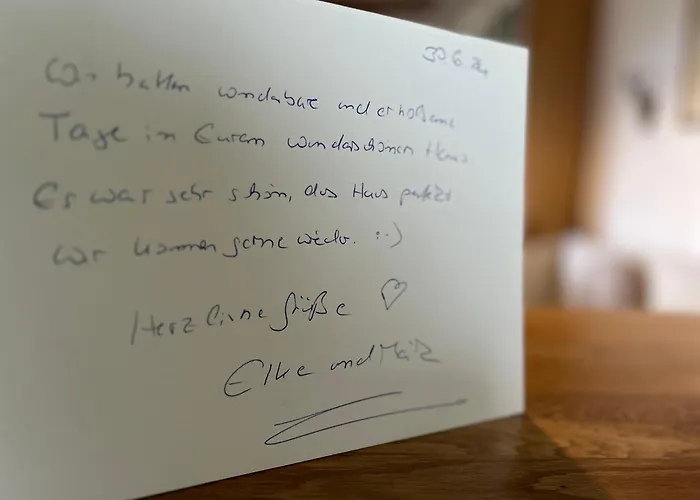 30.6.24
Wir hatten wunderbare und erholsame
Tage in Eurem wunderschönen Haus
Es war sehr schön, das Haus perfekt
wir kommen gerne wieder. :-)
Herzliche Grüße ♡
Elke und